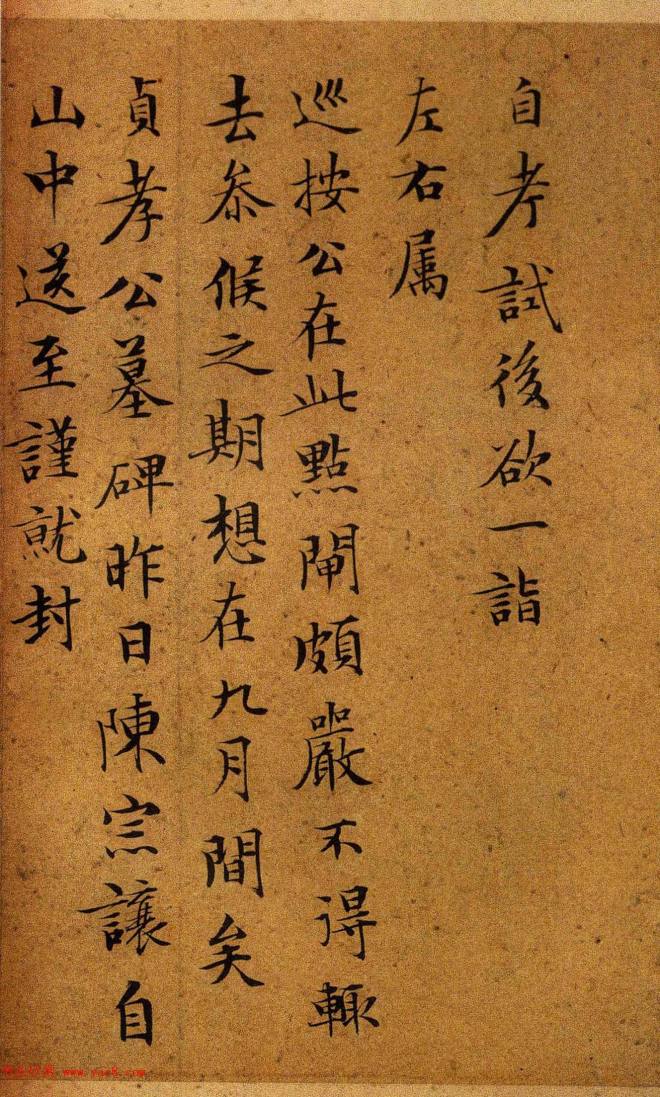 自考試後欲一詣
左右属
巡按公在此點閘頗嚴不得輙
去叅候之期想在九月間矣
貞孝公墓碑昨日陳宗讓自
山中送至謹就封
www.yac8.com